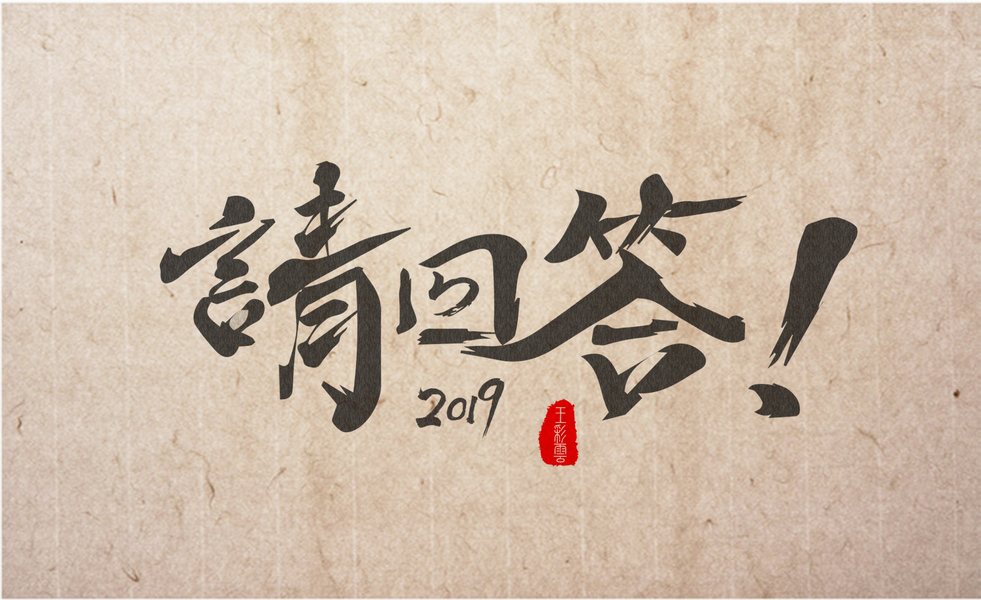 請回答！
2019
王彩雲